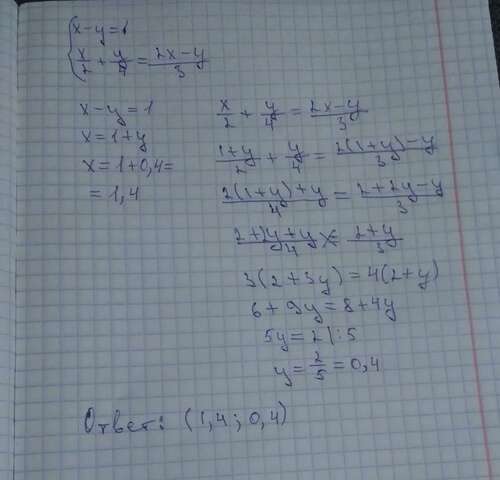 { x-y=1
x/2 + y/4 = 2x-y/3
x-y=1
x=1+y
x=1+0,4=
=1,4
x/2 + y/4 = 2x-y/3
1+y/2 + y/4 = 2(1+y)-y/3
2(1+y)+y/4 = 2+2y-y/3
2+2y+y/4 = 2+y/3
3(2+3y)=4(2+y)
6+9y=8+4y
5y=2 |:5
y=2/5=0,4
Ответ: (1,4; 0,4)